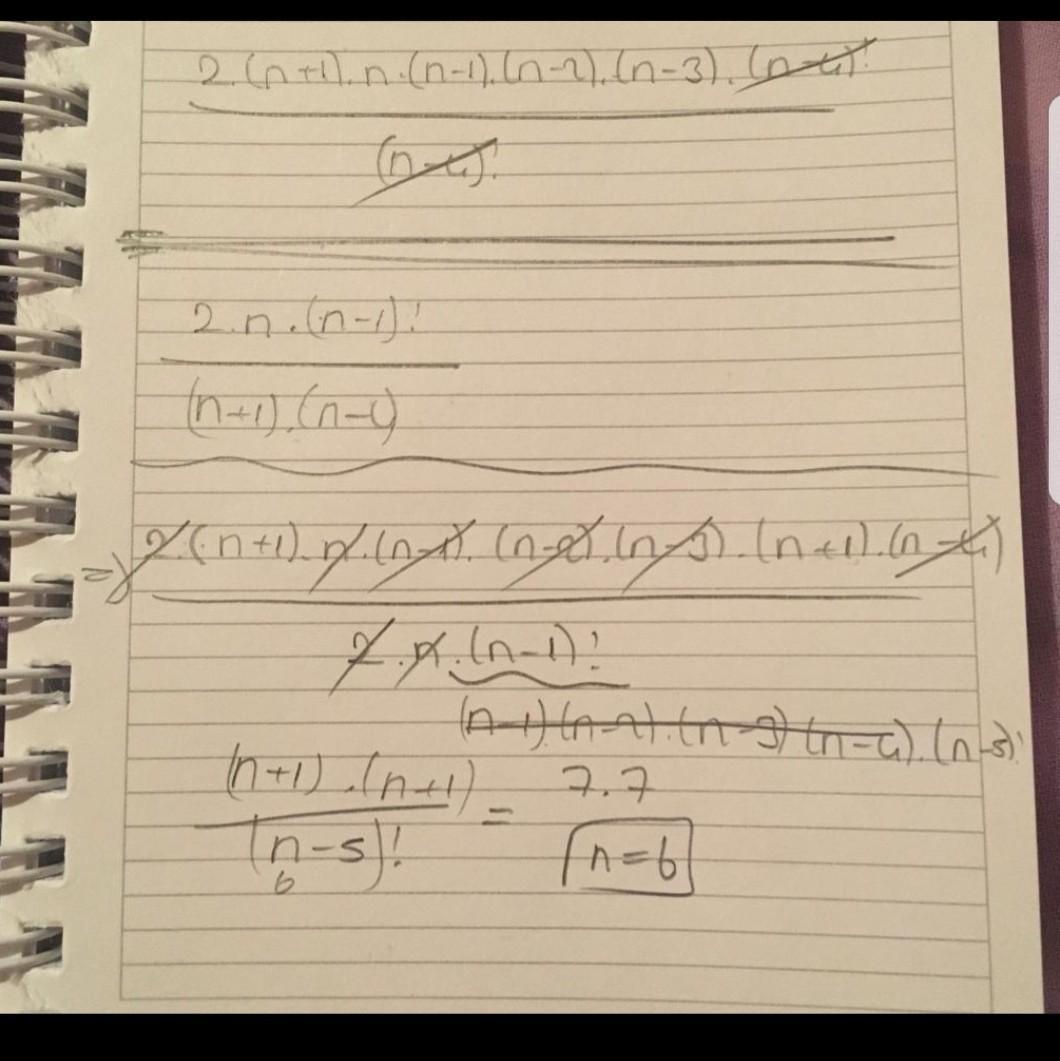 2.(n+1).n.(n-1).(n-2).(n-3).(n-4)!
(n-4)!
2.n.(n-1)!
(n+1).(n-4)
=> 2.(n+1).n.(n-1).(n-2).(n-3).(n+1).(n-4)
2.n.(n-1)!
(n-1)(n-2).(n-3)(n-4).(n-5)!
(n+1).(n+1) = 7.7
(n-5)! n=6
6